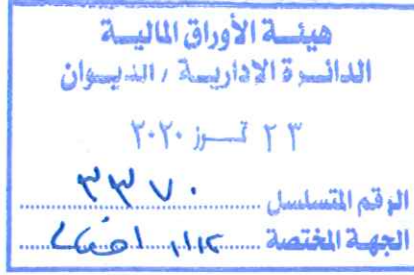 هيئة الأوراق المالية
الدائرة الادارية / الديوان
٢٣ تموز ٢٠٢٠
الرقم المتسلسل ٣٣٧٠
الجهة المختصة